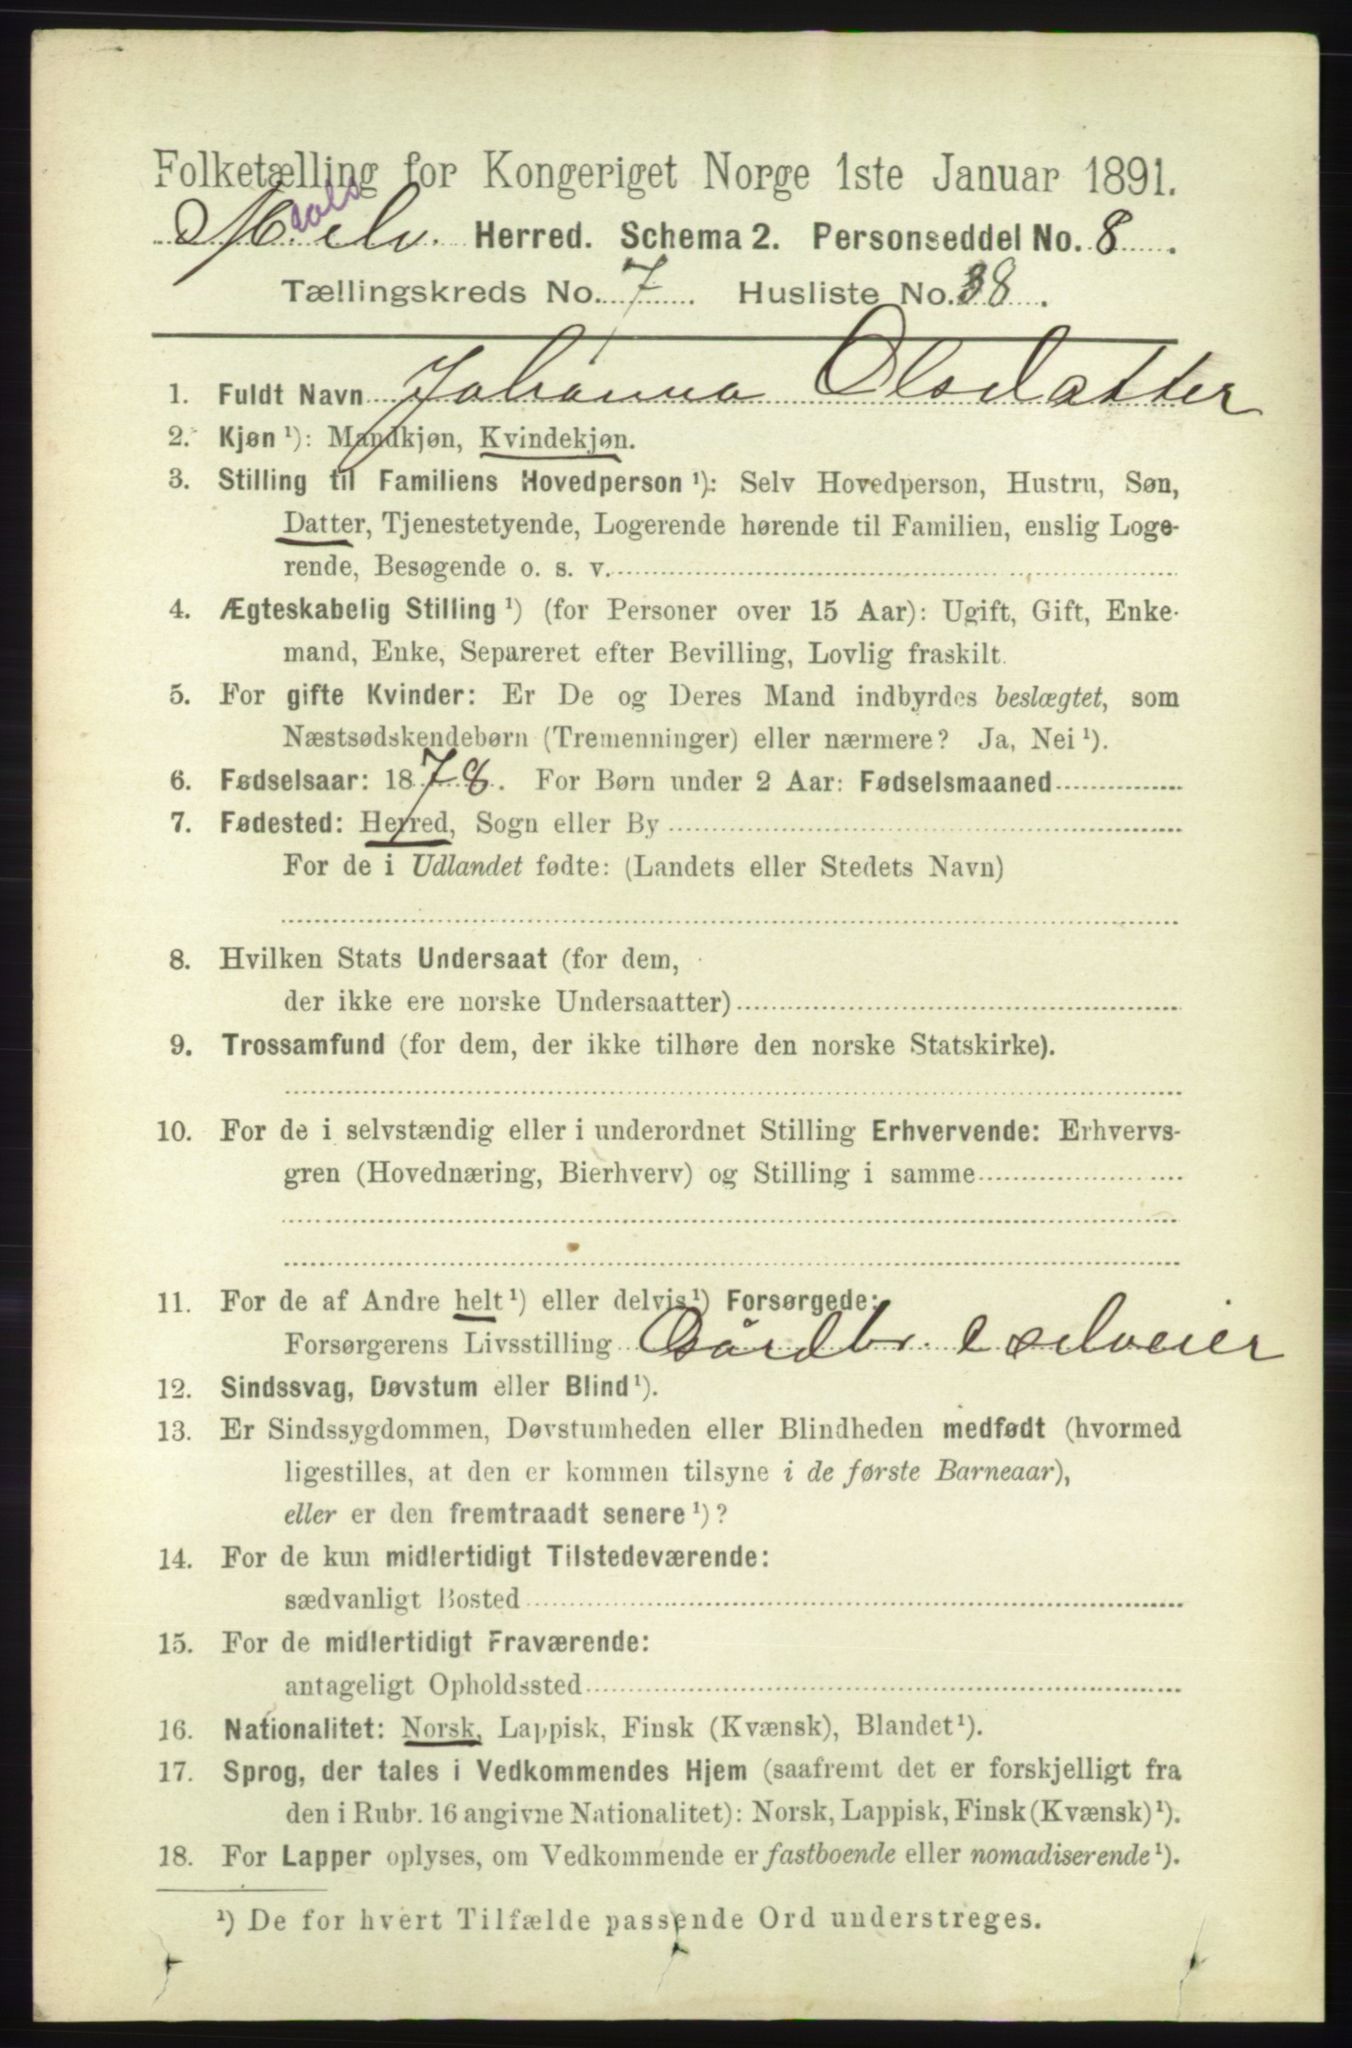 Folketælling for Kongeriget Norge 1ste Januar 1891.
Herred. Schema 2. Personseddel No. 8.
Tællingskreds No. 7 Husliste No. 38.
1. Fuldt Navn Johanna Olsdatter
2. Kjøn ¹): Mandkjøn, Kvindekjøn.
3. Stilling til Familiens Hovedperson ¹): Selv Hovedperson, Hustru, Søn,
Datter, Tjenestetyende, Logerende hørende til Familien, enslig Loge-
rende, Besøgende o. s. v.
4. Ægteskabelig Stilling ¹) (for Personer over 15 Aar): Ugift, Gift, Enke-
mand, Enke, Separeret efter Bevilling, Lovlig fraskilt.
5. For gifte Kvinder: Er De og Deres Mand indbyrdes beslægtet, som
Næstsødskendebørn (Tremenninger) eller nærmere? Ja, Nei ¹).
6. Fødselsaar: 1878. For Børn under 2 Aar: Fødselsmaaned
7. Fødested: Herred, Sogn eller By
For de i Udlandet fødte: (Landets eller Stedets Navn)
8. Hvilken Stats Undersaat (for dem,
der ikke ere norske Undersaatter)
9. Trossamfund (for dem, der ikke tilhøre den norske Statskirke).
10. For de i selvstændig eller i underordnet Stilling Erhvervende: Erhvervs-
gren (Hovednæring, Bierhverv) og Stilling i samme
11. For de af Andre helt ¹) eller delvis ¹) Forsørgede:
Forsørgerens Livsstilling Gårdbr. & selveier
12. Sindssvag, Døvstum eller Blind ¹).
13. Er Sindssygdommen, Døvstumheden eller Blindheden medfødt (hvormed
ligestilles, at den er kommen tilsyne i de første Barneaar),
eller er den fremtraadt senere ¹)?
14. For de kun midlertidigt Tilstedeværende:
sædvanligt Bosted
15. For de midlertidigt Fraværende:
antageligt Opholdssted
16. Nationalitet: Norsk, Lappisk, Finsk (Kvænsk), Blandet ¹).
17. Sprog, der tales i Vedkommendes Hjem (saafremt det er forskjelligt fra
den i Rubr. 16 angivne Nationalitet): Norsk, Lappisk, Finsk (Kvænsk) ¹).
18. For Lapper oplyses, om Vedkommende er fastboende eller nomadiserende ¹).
¹) De for hvert Tilfælde passende Ord understreges.